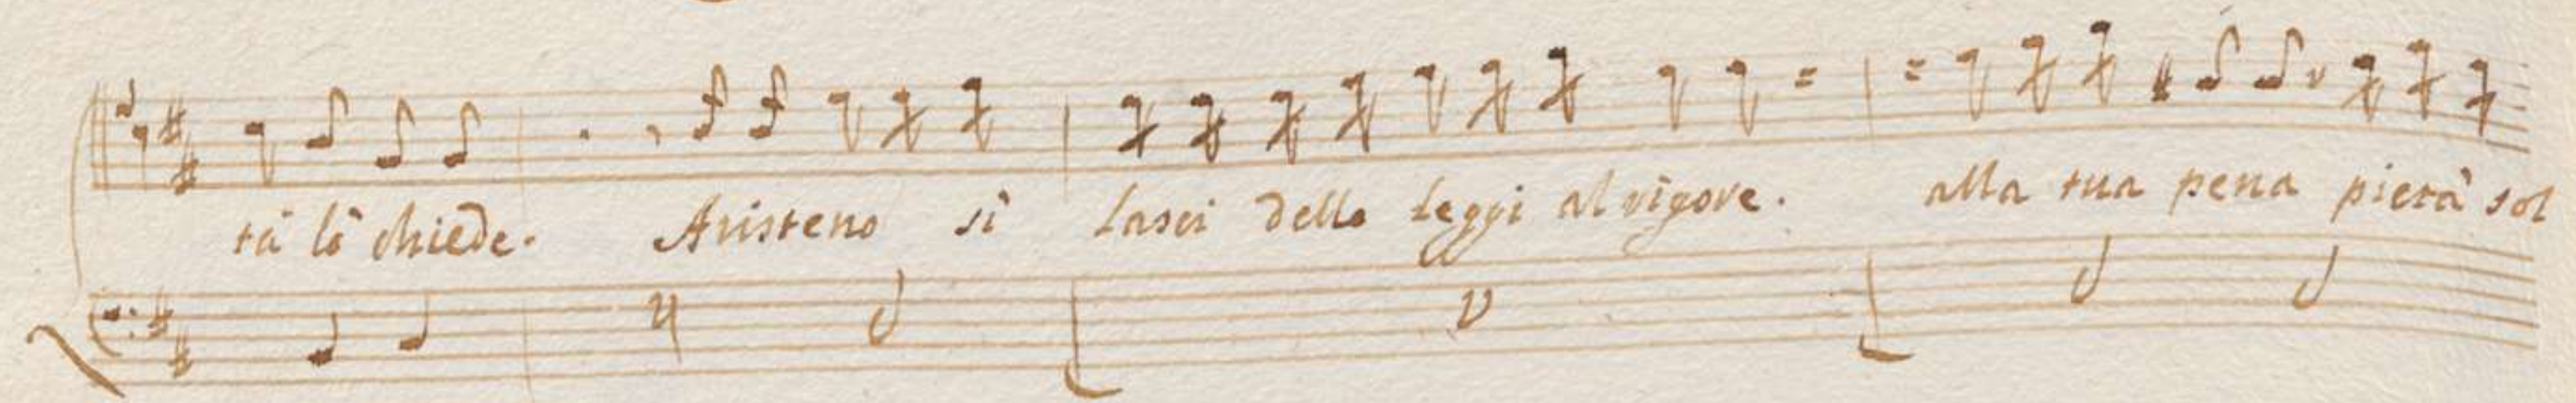 tà lò chiede. Aristeno si lasci delle leggi al rigore. alla tua pena pietà sol